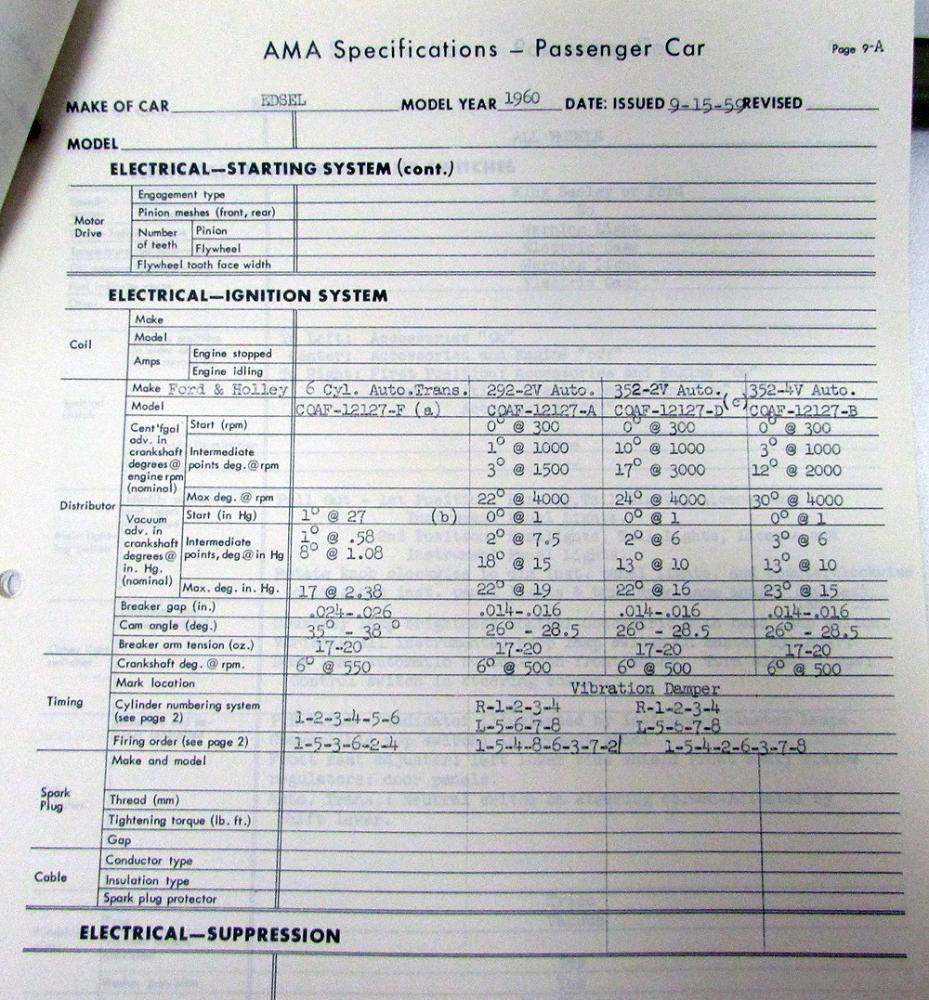 AMA Specifications – Passenger Car Page 9-A
MAKE OF CAR EDSEL MODEL YEAR 1960 DATE: ISSUED 9-15-59 REVISED
MODEL
ELECTRICAL—STARTING SYSTEM (cont.)
Motor Drive
Engagement type
Pinion meshes (front, rear)
Number of teeth Pinion
Flywheel
Flywheel tooth face width
ELECTRICAL—IGNITION SYSTEM
Coil
Make
Model
Amps Engine stopped
Engine idling
Distributor
Make Ford & Holley 6 Cyl. Auto.Trans. 292-2V Auto. 352-2V Auto. (c) 352-4V Auto.
Model COAF-12127-F (a) COAF-12127-A COAF-12127-D COAF-12127-B
Cent'fgal adv. in crankshaft degrees @ engine rpm (nominal)
Start (rpm) 0° @ 300 0° @ 300 0° @ 300
Intermediate points deg. @ rpm 1° @ 1000 10° @ 1000 3° @ 1000
3° @ 1500 17° @ 3000 12° @ 2000
Max deg. @ rpm 22° @ 4000 24° @ 4000 30° @ 4000
Vacuum adv. in crankshaft degrees @ in. Hg. (nominal)
Start (in Hg) 1° @ 27 (b) 0° @ 1 0° @ 1 0° @ 1
Intermediate points, deg @ in Hg 1° @ .58 2° @ 7.5 2° @ 6 3° @ 6
8° @ 1.08 18° @ 15 13° @ 10 13° @ 10
Max. deg. in Hg. 17 @ 2.38 22° @ 19 22° @ 16 23° @ 15
Breaker gap (in.) .024-.026 .014-.016 .014-.016 .014-.016
Cam angle (deg.) 35° - 38° 26° - 28.5 26° - 28.5 26° - 28.5
Breaker arm tension (oz.) 17-20 17-20 17-20 17-20
Timing
Crankshaft deg. @ rpm. 6° @ 550 6° @ 500 6° @ 500 6° @ 500
Mark location Vibration Damper
Cylinder numbering system (see page 2) 1-2-3-4-5-6 R-1-2-3-4 R-1-2-3-4
L-5-6-7-8 L-5-6-7-8
Firing order (see page 2) 1-5-3-6-2-4 1-5-4-8-6-3-7-2 1-5-4-2-6-3-7-8
Spark Plug
Make and model
Thread (mm)
Tightening torque (lb. ft.)
Gap
Cable
Conductor type
Insulation type
Spark plug protector
ELECTRICAL—SUPPRESSION